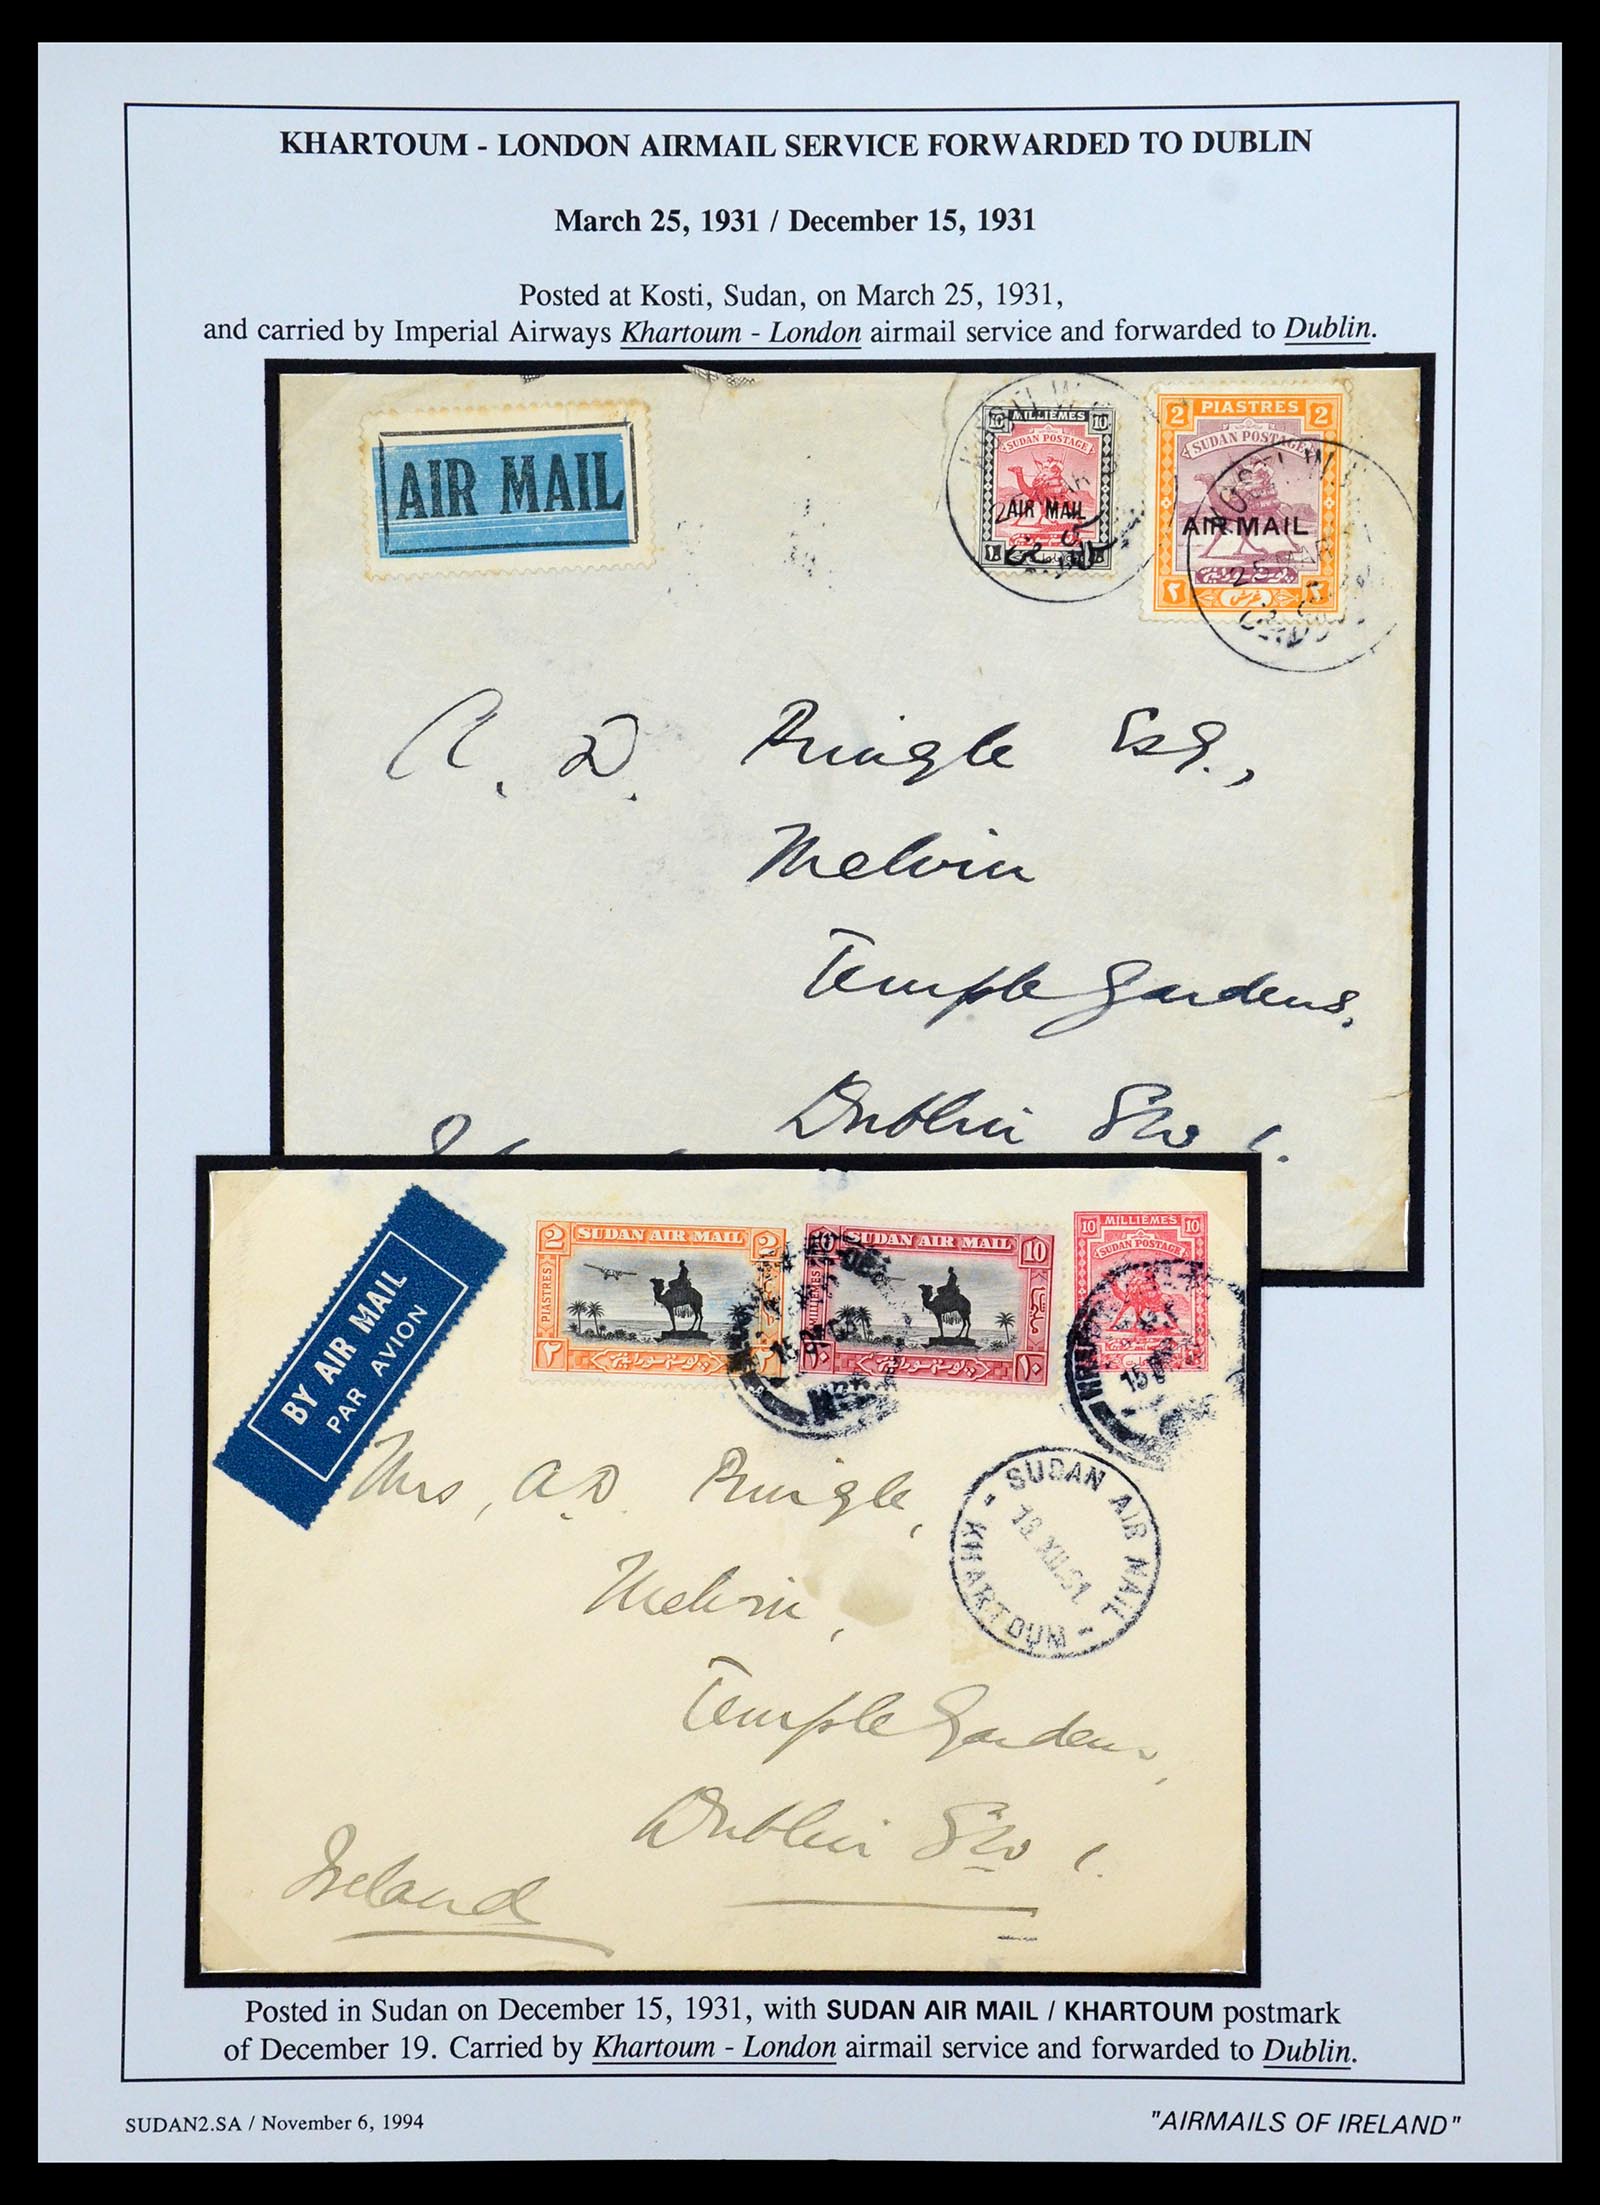 KHARTOUM - LONDON AIRMAIL SERVICE FORWARDED TO DUBLIN
March 25, 1931 / December 15, 1931
Posted at Kosti, Sudan, on March 25, 1931,
and carried by Imperial Airways Khartoum - London airmail service and forwarded to Dublin.
AIR MAIL
10 MILLIEMES 10
SUDAN POSTAGE
AIR MAIL
2 PIASTRES 2
SUDAN POSTAGE
AIR MAIL
٢ ٢
A. D. Pringle Esq.,
Melvin
Temple Gardens,
Dublin SW 1.
BY AIR MAIL
PAR AVION
2 SUDAN AIR MAIL 2
PIASTRES
٢ ٢
SUDAN AIR MAIL 10
MILLIEMES
١٠ ١٠
10 MILLIEMES 10
SUDAN POSTAGE
15
SUDAN AIR MAIL
KHARTOUM
Mrs, A.D. Pringle,
Melvin,
Temple Gardens,
Dublin SW 1.
Ireland
Posted in Sudan on December 15, 1931, with SUDAN AIR MAIL / KHARTOUM postmark
of December 19. Carried by Khartoum - London airmail service and forwarded to Dublin.
SUDAN2.SA / November 6, 1994
"AIRMAILS OF IRELAND"